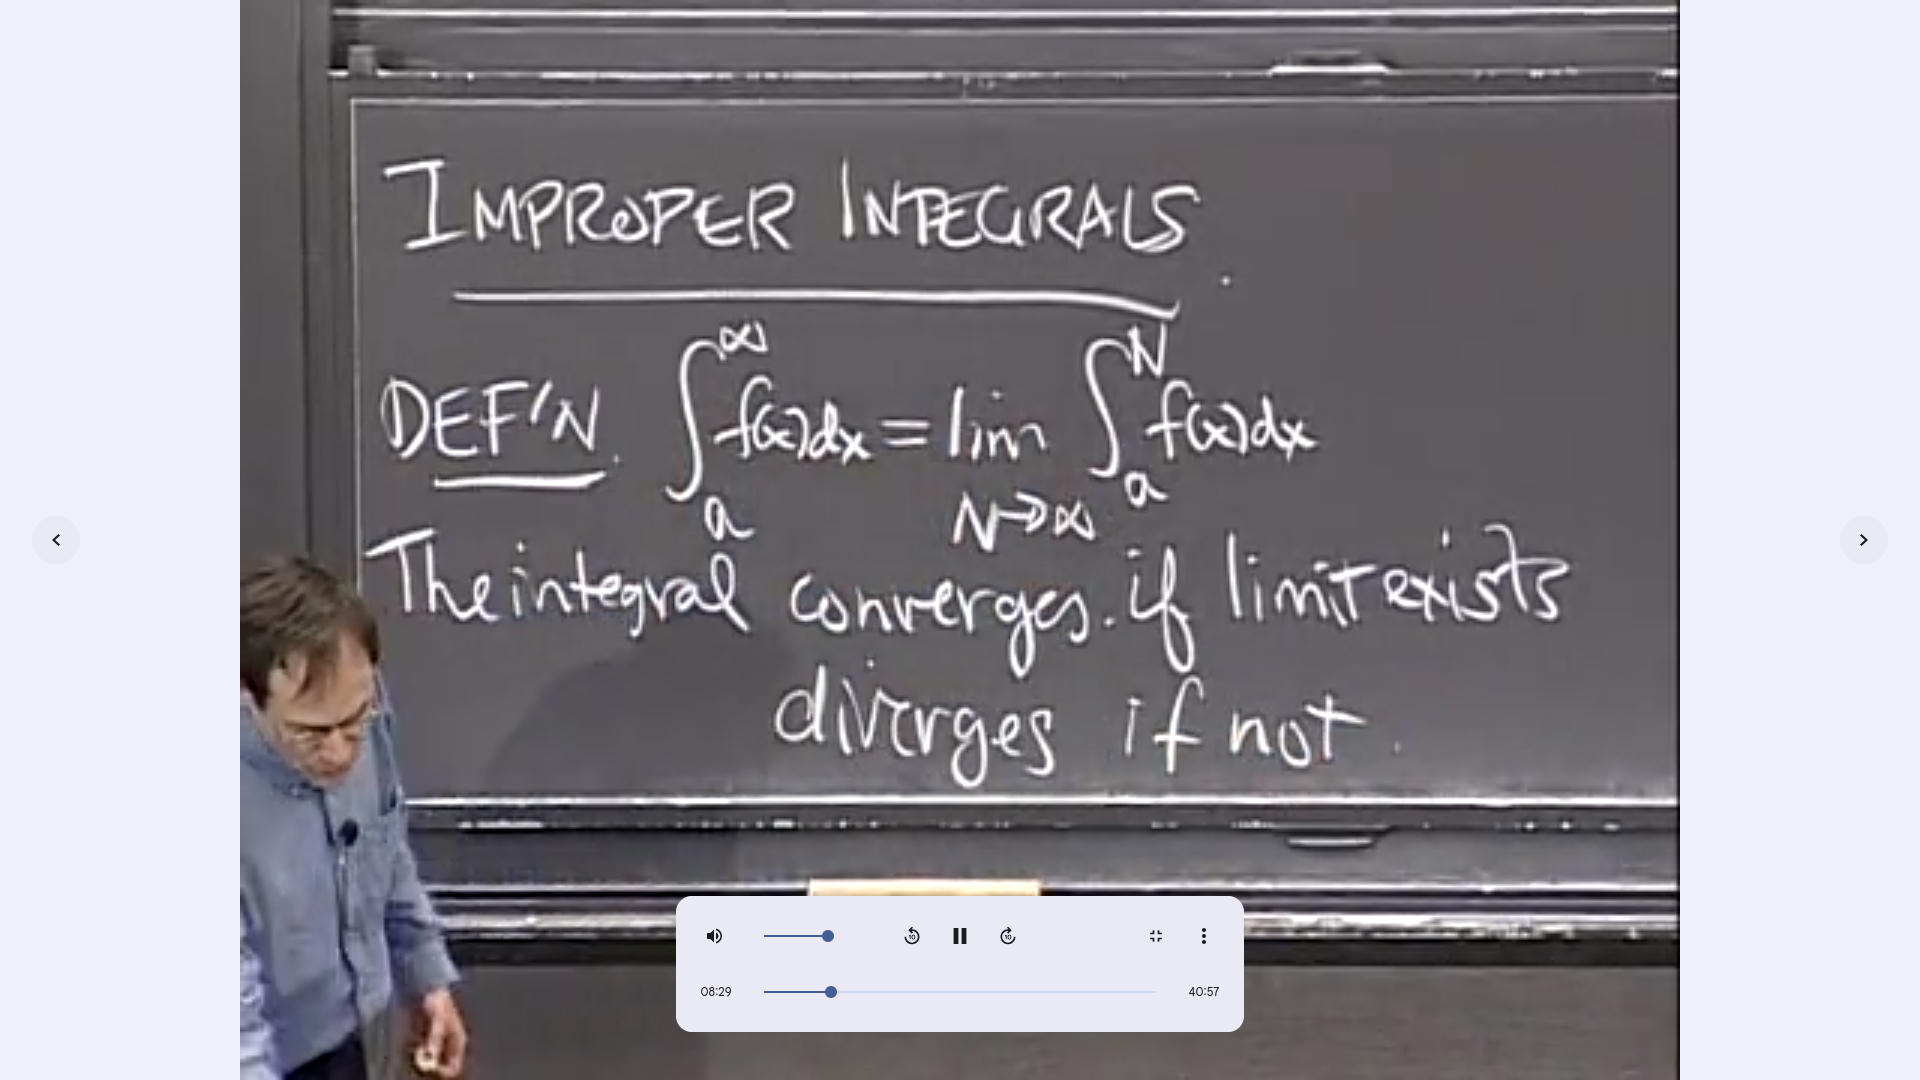 IMPROPER INTEGRALS.
DEF'N. ∫ₐ^∞ f(x)dx = lim_{N→∞} ∫ₐ^N f(x)dx
The integral converges if limit exists
diverges if not.
10
10
08:29
40:57